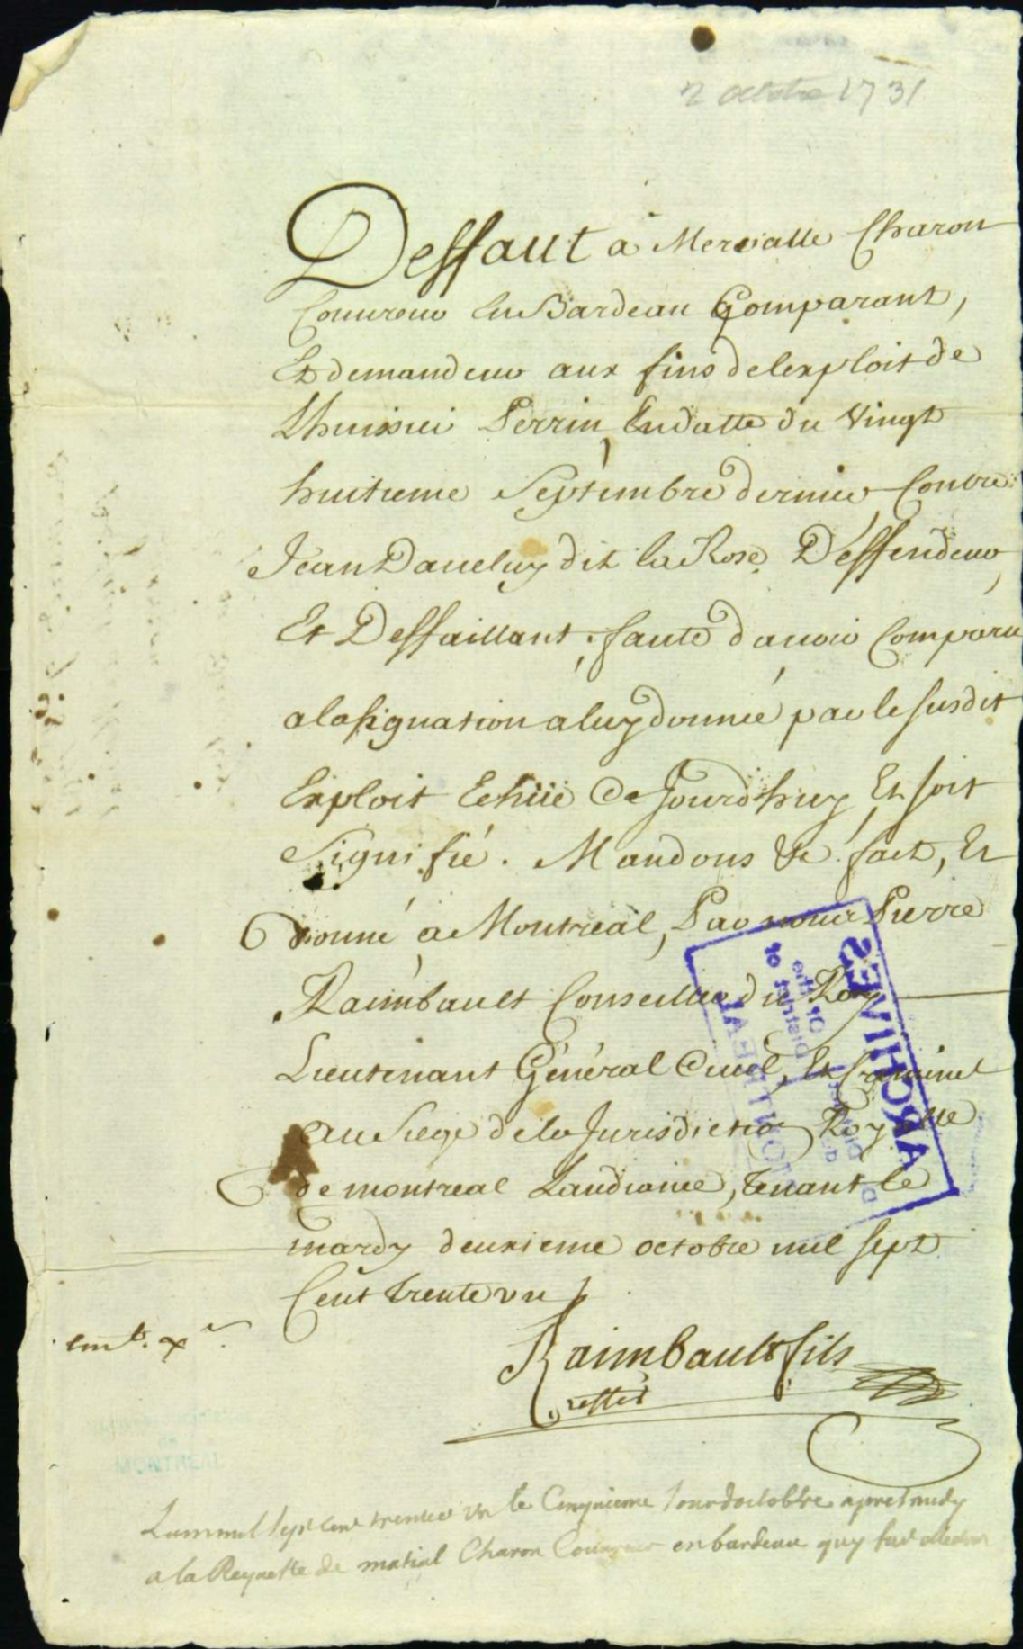 2 octobre 1731
Deffaut a Mercialle Charon
Couvreur En Bardeau Comparant,
Et demandeur aux fins de lexploit de
Lhuissier Perrin, En datte du Vingt
huitieme Septembre dernier, Contre
Jean Daveluy dit la Rose, Deffendeur,
Et Deffaillant, faute d'avoir Comparu
a lassignation a luy donnée par le susdit
Exploit Echüe Ce Jourdhuy, Et soit
Signifié. Mandons &c. fait, Et
donné, a Montreal, Par nous Pierre
Raimbault Conseiller du Roy
Lieutenant Général Civil, Et Criminel
au Siege de la Jurisdiction Royalle
de montreal Laudiance, tenant le
mardy deuxieme octobre mil sept
Cent trente un
Raimbault fils
Greffier
ARCHIVES
MONTREAL
MONTREAL
Lan mil sept cent trente un le Cinquieme Jour doctobre apres midy
a la Requette de matial Charon Couvreur en bardeau quy fait